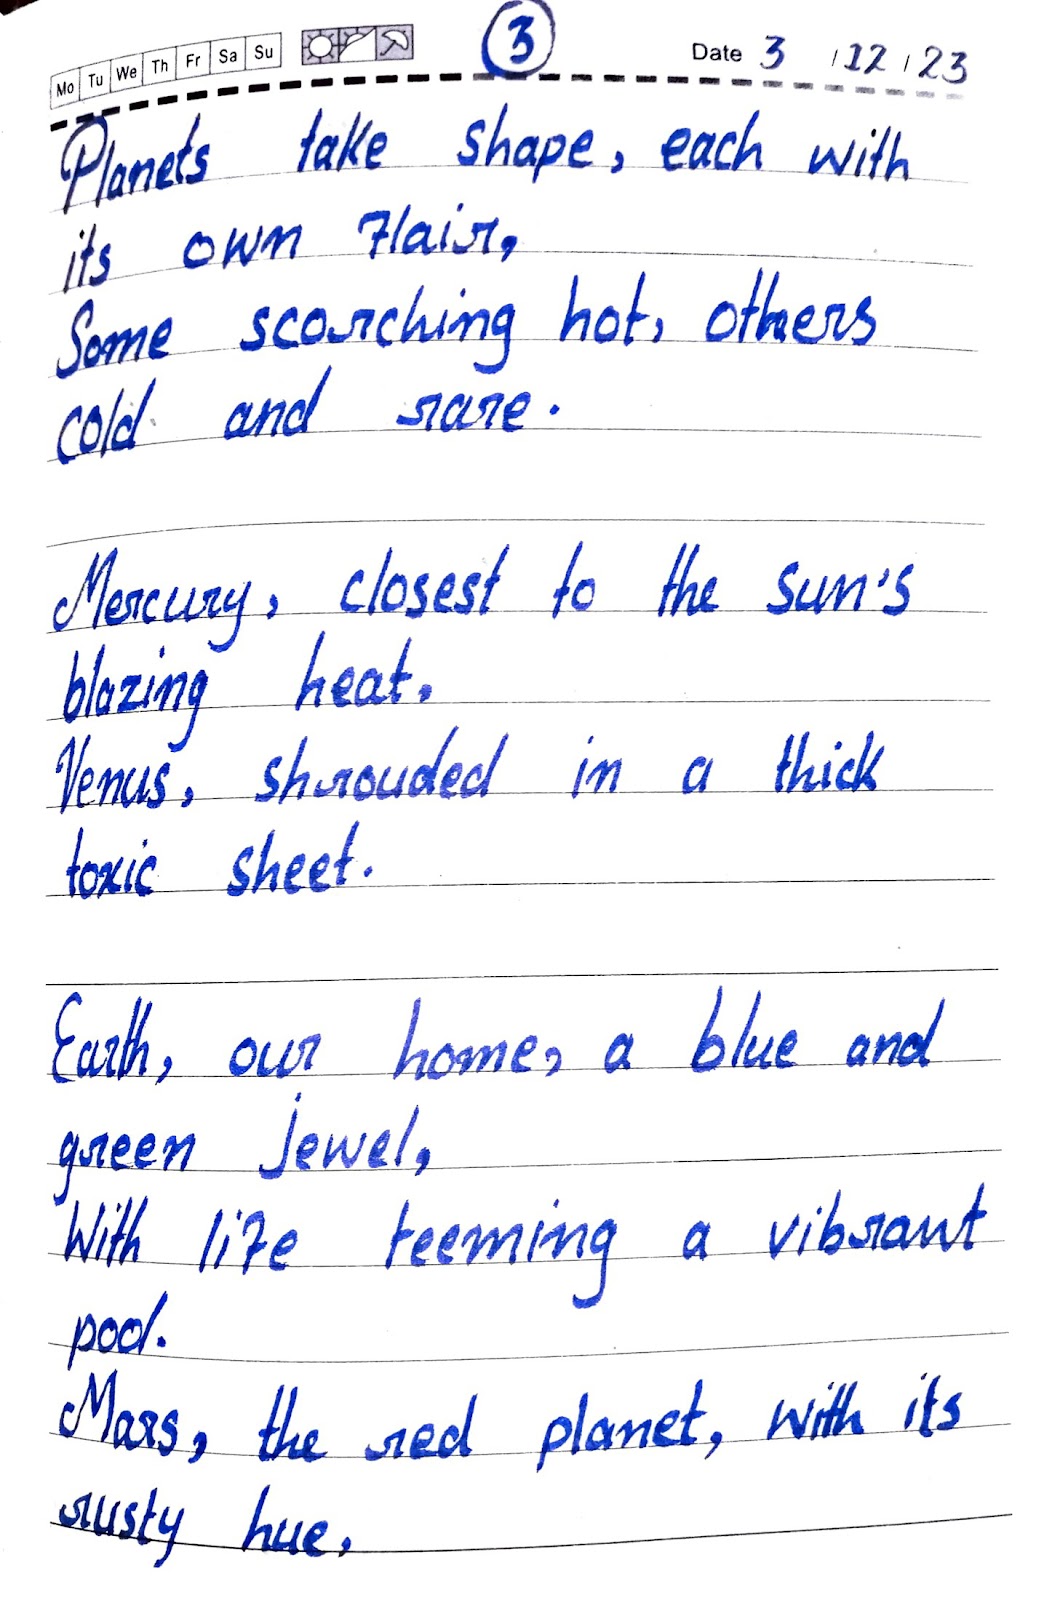 Mo Tu We Th Fr Sa Su 3 Date 3 / 12 / 23
Planets take shape, each with
its own flair,
Some scorching hot, others
cold and rare.
Mercury, closest to the sun's
blazing heat,
Venus, shrouded in a thick
toxic sheet.
Earth, our home, a blue and
green jewel,
With life teeming a vibrant
pool.
Mars, the red planet, with its
rusty hue,